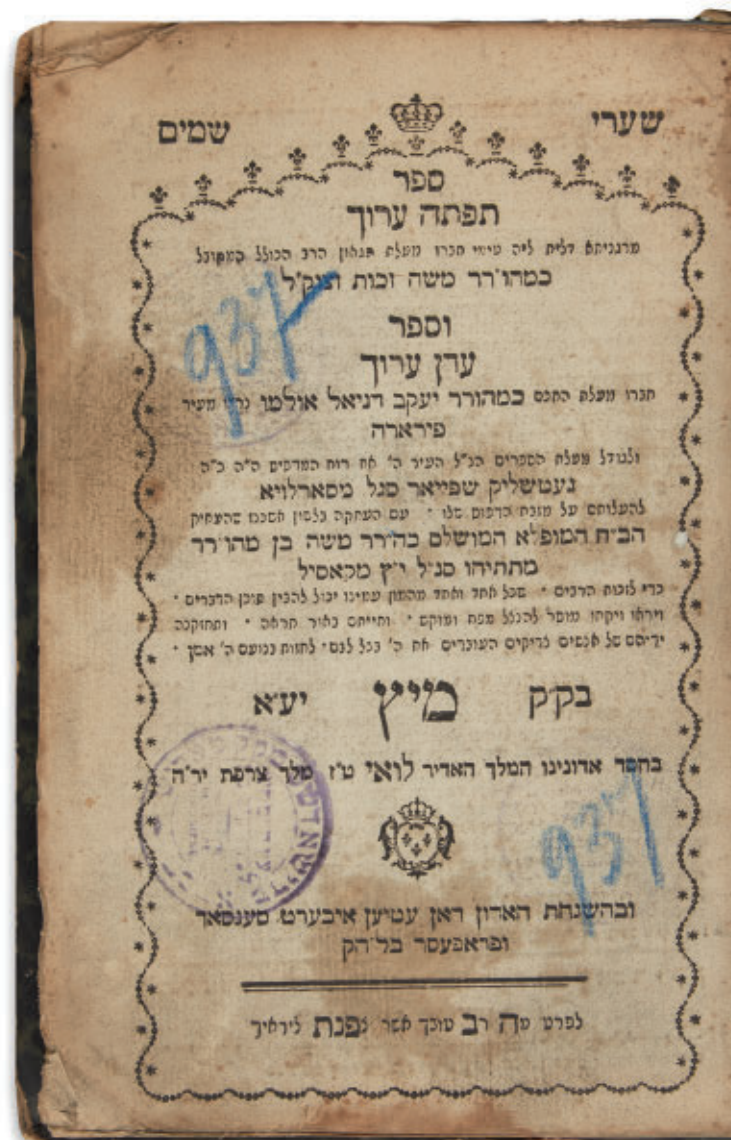 שערי שמים
ספר
תפתה ערוך
מרגניתא דלית ליה טימי חברו מעלת הגאון הרב הכולל המקובל
כמהו״רר משה זכות זצוק״ל
וספר
עדן ערוך
חברו מעלת החכם כמהורר יעקב דניאל אולמו נר״ו מעיר
פירארה
ולגודל מעלת הספרים הנ״ל העיר ה׳ את רוח המדפיס ה״ה כ״ה
געטשליק שפייאר סגל מסארלויא
להעלותם על מזבח הדפוס שלו ٠ עם העתקה בלשון אשכנז שהעתיק
הב״ח המופלא המושלם כה״רר משה בן מהו״רר
מתתיהו סג״ל י״ץ מקאסיל
כדי לזכות הרבים ٠ שכל אחד ואחד מהמון עמינו יכול להבין תוכן הדברים ٠
ויראו ויקחו מוסר להנצל מפח ומוקש ٠ וחייהם באור תראה ٠ ותחזקנה
ידיהם של אנשים צדיקים העובדים את ה׳ בכל לבם ٠ לחזות בנועם ה׳ אמן ٠
בק״ק מיץ יע״א
בחסד אדונינו המלך האדיר לואי ט״ז מלך צרפת יר״ה
ובהשגחת האדון דאן עטיען איבערט סענסאר
ופראפעסר בל״הק
לפרט מה רב טובך אשר צפנת ליראיך
937
937